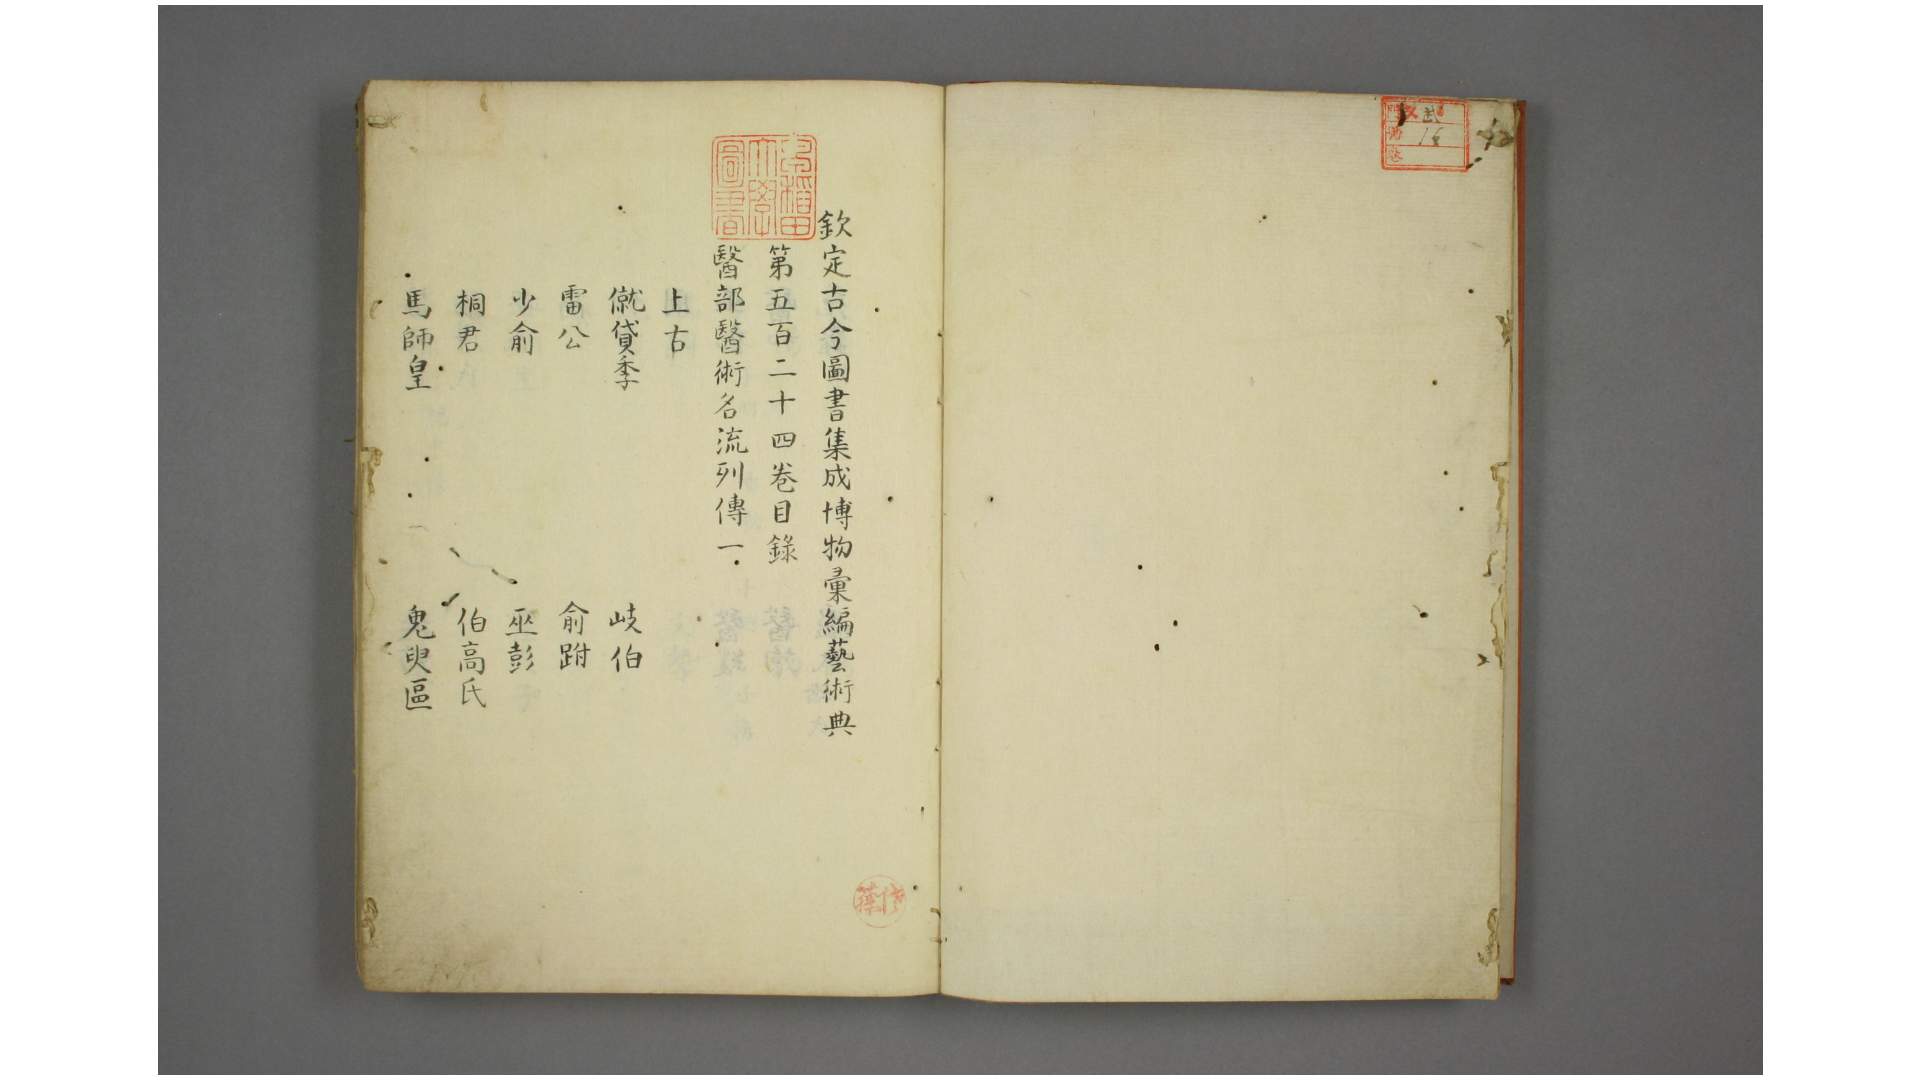 欽定古今圖書集成博物彙編藝術典
第五百二十四卷目錄
醫部醫術名流列傳一
上古
僦貸季 岐伯
雷公 俞跗
少俞 巫彭
桐君 伯高氏
馬師皇 鬼臾區
早稲田大學圖書